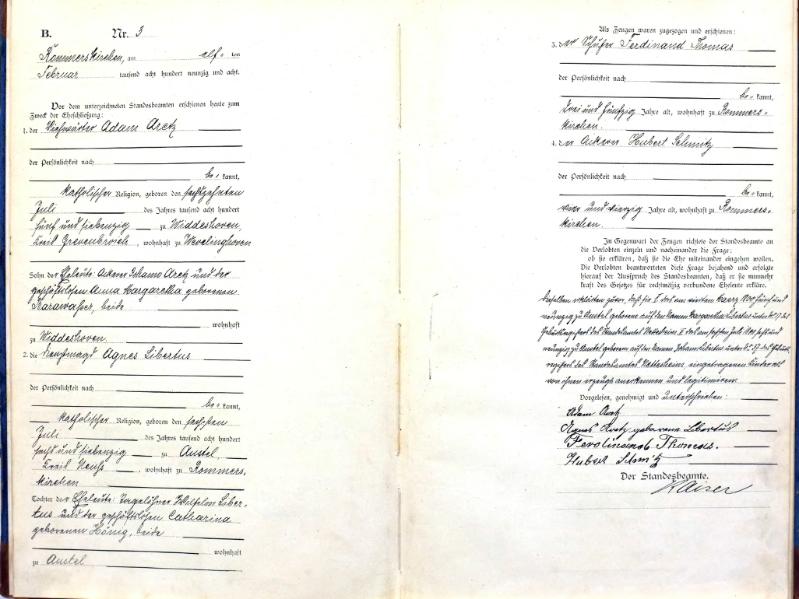 B. Nr. 3
Rommerskirchen, am elf ten
Februar tausend acht hundert neunzig und acht.
Vor dem unterzeichneten Standesbeamten erschienen heute zum
Zweck der Eheschließung:
1. der Adam Aretz
der Persönlichkeit nach
be kannt,
katholischer Religion, geboren den sechszehnten
Juli des Jahres tausend acht hundert
fünf und siebenzig zu Widdeshoven,
Kreis Grevenbroich, wohnhaft zu Wevelinghoven
Sohn der Eheleute: Ackerer Johann Aretz und der
geschäftslosen Anna Margaretha geborenen
beide
wohnhaft
zu Widdeshoven.
2. die Agnes Libertus
der Persönlichkeit nach
be kannt,
katholischer Religion, geboren den sechsten
Juli des Jahres tausend acht hundert
sechs und siebenzig zu Anstel
Kreis Neuss, wohnhaft zu Rommers-
kirchen
Tochter der Eheleute: Tagelöhner Wilhelm Liber-
tus und der geschäftslosen Catharina
geborenen Hönig, beide
wohnhaft
zu Anstel
Als Zeugen waren zugezogen und erschienen:
3. der Ferdinand Thomas
der Persönlichkeit nach
be kannt,
zwei und fünfzig Jahre alt, wohnhaft zu Rommers-
kirchen.
4. der Ackerer Hubert Schmitz
der Persönlichkeit nach
be kannt,
vier und vierzig Jahre alt, wohnhaft zu Rommers-
kirchen.
In Gegenwart der Zeugen richtete der Standesbeamte an
die Verlobten einzeln und nacheinander die Frage:
ob sie erklären, daß sie die Ehe miteinander eingehen wollen.
Die Verlobten beantworteten diese Frage bejahend und erfolgte
hierauf der Ausspruch des Standesbeamten, daß er sie nunmehr
kraft des Gesetzes für rechtmäßig verbundene Eheleute erkläre.
Dieselben erklärten zuvor, daß sie I das am vierten März 1895 fünf und
neunzig zu Anstel geborene auf den Namen Margaretha Libertus unter Nr. 17 des
Geburtsregisters des Standesamtes Nettesheim II das am sechsten Juli 1896 sechs und
neunzig zu Anstel geborene auf den Namen Johann Libertus unter Nr. 37 des Geburts-
registers des Standesamtes Nettesheim, eingetragenen Kinder als
von ihnen erzeugt anerkennen und legitimieren.
Vorgelesen, genehmigt und unterschrieben:
Adam Aretz
Agnes Aretz geborene Libertus
Ferdinand Thomas.
Hubert Schmitz
Der Standesbeamte.
Kaiser